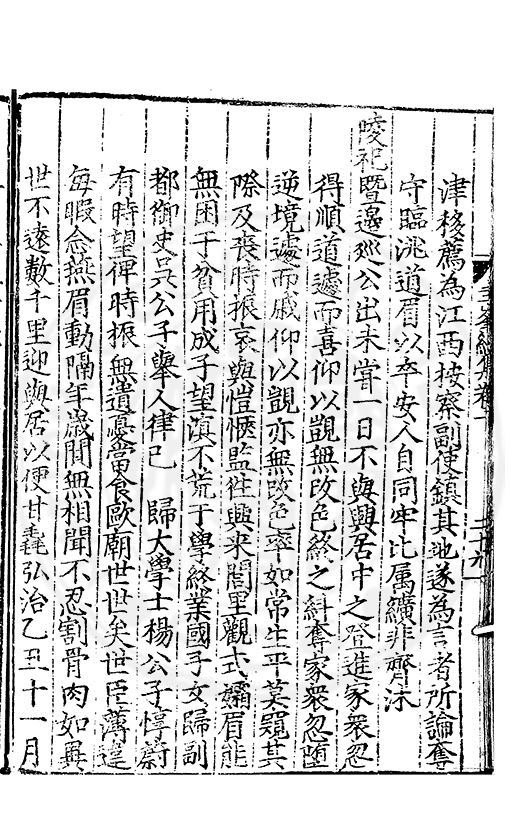 津移薦為江西按察副使鎮其地遂為言者所論奪
守臨洮道眉以卒安人自同牢比屬纊非齊沐
陵祀暨邊巡公出未嘗一日不與興居中之登進家衆忽
得順道遽而喜仰以觀無改色終之糾奪家衆忽墮
逆境遽而戚仰以觀亦無改色率如常生平莫窺其
際及喪時振哀與愷惬監徃興來閭里觀弍孀眉能
無困于貧用成子望滇不荒于學終業國子女歸副
都御史吳公子舉人律巳 歸大學士楊公子惇蔚
有時望俾時振無遺憂當食歐廟世世矣世臣薄違
每暇念燕眉動隔年歲間無相聞不忍割骨肉如異
世不遠數千里迎與居以便甘毳弘治乙丑十一月